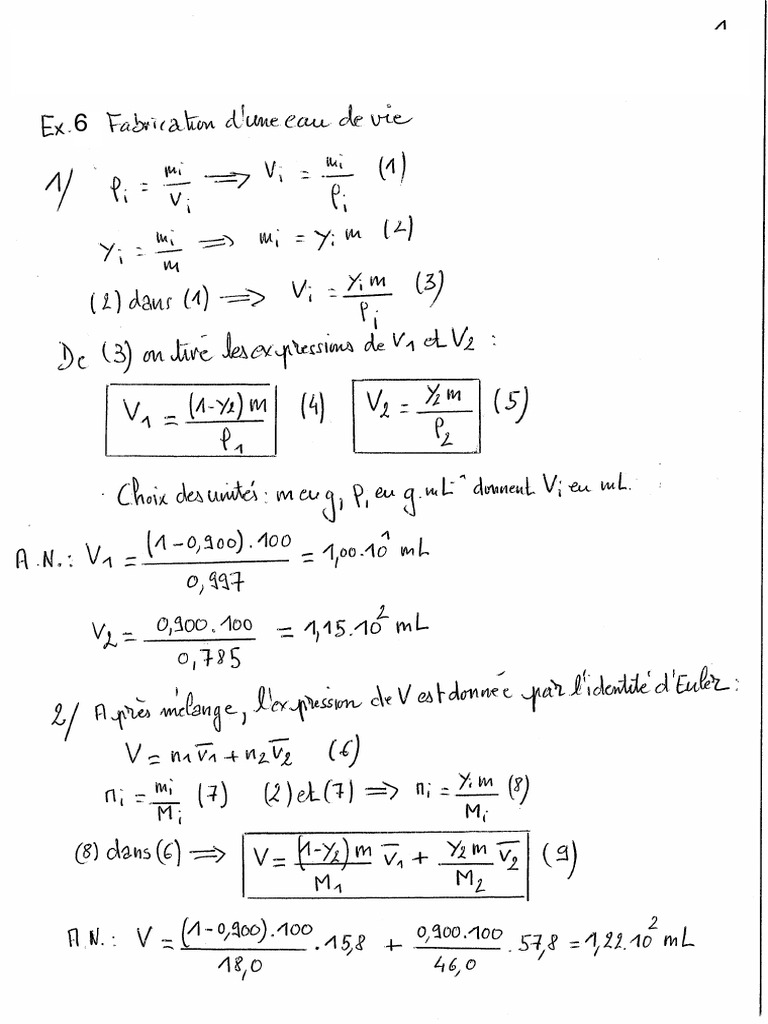 1
Ex.6 Fabrication d'une eau de vie
1/ ρi = mi/Vi ⟹ Vi = mi/ρi (1)
yi = mi/m ⟹ mi = yi m (2)
(2) dans (1) ⟹ Vi = yi m/ρi (3)
De (3) on tire les expressions de V1 et V2 :
V1 = (1-y2) m/ρ1 (4) V2 = y2 m/ρ2 (5)
Choix des unités : m en g, ρi en g.mL⁻¹ donnent Vi en mL.
A.N.: V1 = (1-0,900).100/0,997 = 1,00.10¹ mL
V2 = 0,900.100/0,785 = 1,15.10² mL
2/ Après mélange, l'expression de V est donnée par l'identité d'Euler :
V = n1 v̅1 + n2 v̅2 (6)
ni = mi/Mi (7) (2) et (7) ⟹ ni = yi m/Mi (8)
(8) dans (6) ⟹ V = (1-y2) m/M1 v̅1 + y2 m/M2 v̅2 (9)
A.N.: V = (1-0,900).100/18,0 .15,8 + 0,900.100/46,0 . 57,8 = 1,22.10² mL